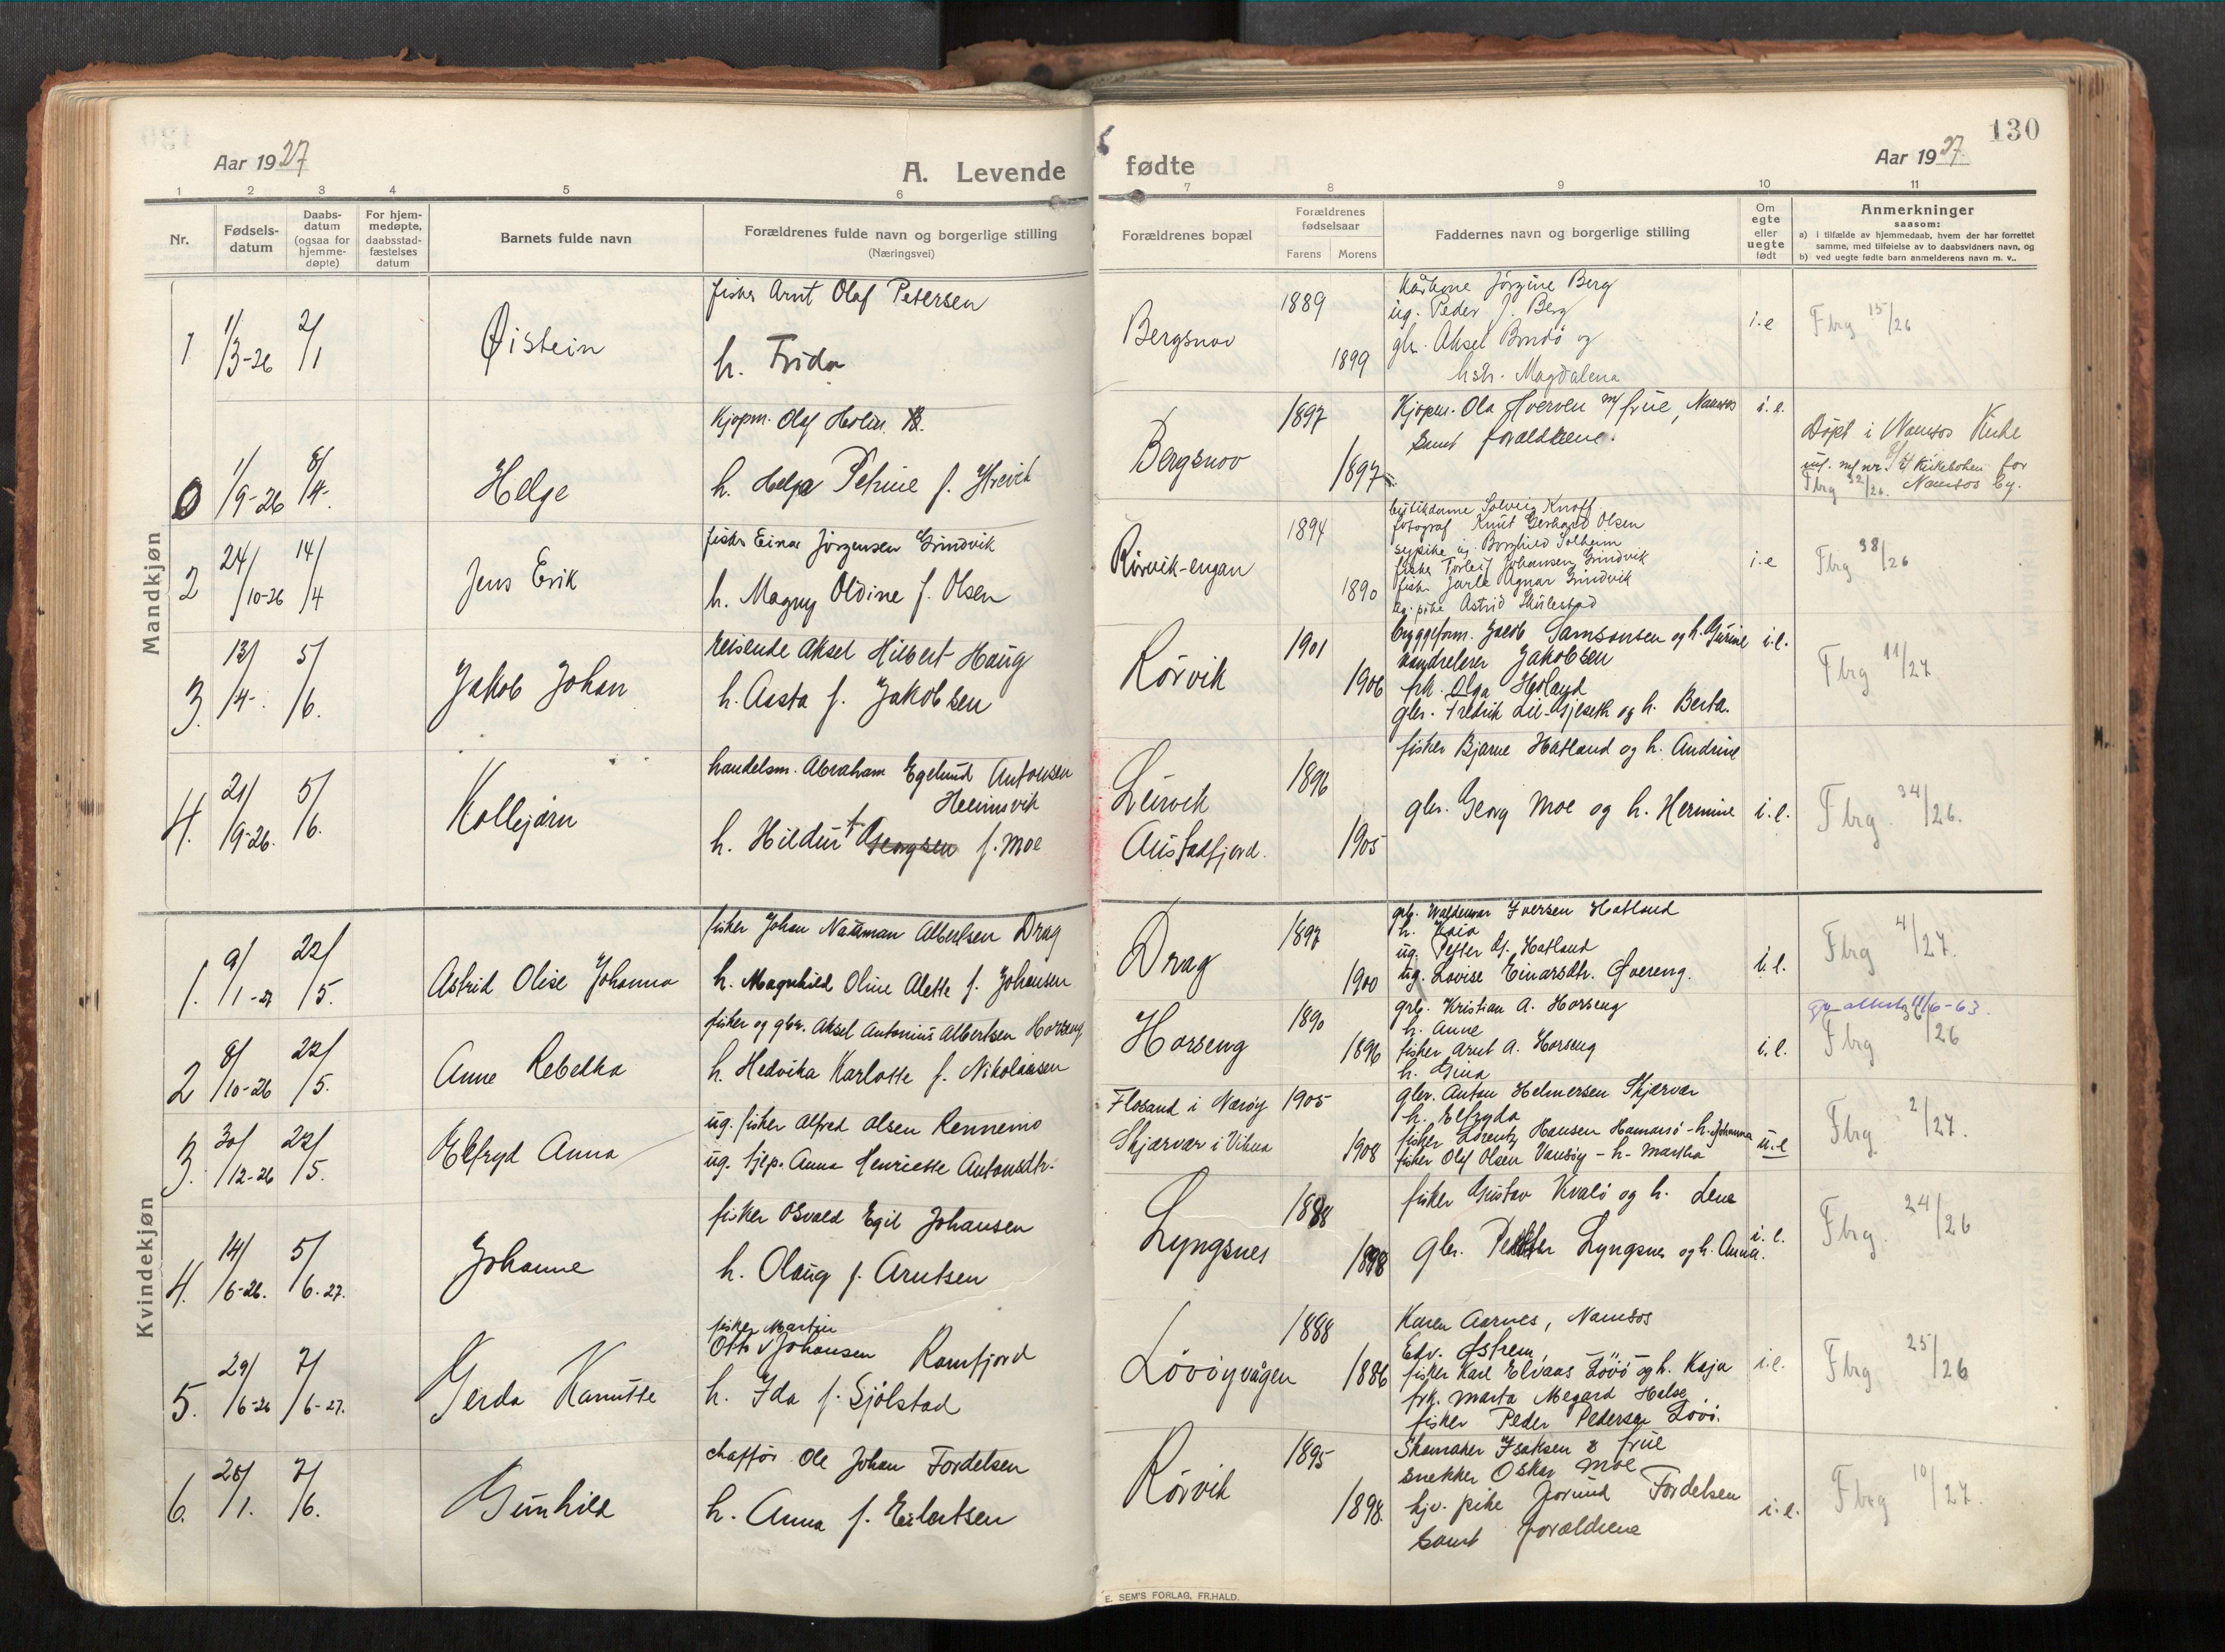 130
Aar 1927
A. Levende
fødte
Aar 1927
1 2 3 4 5 6 7 8 9 10 11
Nr.
Fødsels-
datum
Daabs-
datum
(ogsaa for
hjemme-
døpte)
For hjem-
medøpte,
daabsstad-
fæstelses
datum
Barnets fulde navn
Forældrenes fulde navn og borgerlige stilling
(Næringsvei)
Forældrenes bopæl
Forældrenes
fødselsaar
Farens Morens
Faddernes navn og borgerlige stilling
Om
egte
eller
uegte
født
Anmerkninger
saasom:
a) i tilfælde av hjemmedaab, hvem der har forrettet
samme, med tilføielse av to daabsvidners navn, og
b) ved uegte fødte barn anmelderens navn m. v..
Mandkjøn
1
1/3-26
2/1
Øistein
fisker Arnt Olaf Petersen
h. Frida
Bergsnov
1889
1899
Jørgine Berg
ug. Peder J. Berg
gbr. Aksel Brudø og
hstr. Magdalena
i.e
Fbrg 15/26
0
1/9-26
8/4.
Helge
Kjøpm. Olaf Holm
h. Helga Petrine f. Ytrevik
Bergsnov
1897
1897
Kjøpm. Ola Hverven m/frue, Namsos
samt forældrene.
i.e.
Døpt i Namsos Kirke
for
Fbrg 32/26. Namsos by.
2
24/10-26
14/4
Jens Erik
fisker Einar Jørgensen Grindvik
h. Magny Oldine f. Olsen
Rørvik-engan
1894
1890
butikdame Solveig Knoff
fotograf Knut Gerhard Olsen
sypike ug. Borghild Solheim
fisker Torleif Johansen Grindvik
fisker Jarle Agnar Grindvik
ug. pike Astrid Skulestad
i.e
Fbrg 38/26
3.
13/4-
5/6.
Jakob Johan
reisende Aksel Hilbert Haug
h. Aasta f. Jakobsen
Rørvik
1901
1906
byggeform. Jacob Samsonsen og h. Gurine
vandrelærer Jakobsen
frk. Olga Høland
gbr. Fredrik Lie-Gjeseth og h. Berta.
i.e.
Fbrg 11/27
4.
21/9-26.
5/6.
Kolbjørn
handelsm. Abraham Egelund Antonsen
Heimsvik
h. Hildur Georgsen f. Moe
Leirvik
Austadfjord.
1896
1905
fisker Bjarne Hatland og h. Andrine
gbr. Georg Moe og h. Hermine
i.e.
Fbrg. 34/26.
Kvindekjøn
1.
9/1-27
22/5.
Astrid Olise Johanna
fisker Johan Nauman Albertsen Drag
h. Magnhild Oline Alette f. Johansen
Drag
1897
1900
grb. Waldemar Iversen Hatland
h. Kaia
ug. Petter A. Hatland
ug. Lovise Einarsdtr. Qvereng.
i.e.
Fbrg 4/27.
2
8/10-26
22/5.
Anne Rebekka
fisker og gbr. Aksel Antonius Albertsen Horseng
h. Hedvika Karlotte f. Nikolaisen
Horseng
1890
1896
grb. Kristian A. Horseng
h. Anne
fisker Arnt A. Horseng
h. Gina
i.e.
11/6-63.
Fbrg 36/26
3.
30/12-26
22/5.
Elfryd Anna
ug. fisker Alfred Olsen Rennemo
ug. tjep. Anna Henriette Antonsdtr.
Flosand i Nærøy
Skjærvær i Vikna
1905
1908
gbr. Anton Helmersen Skjærvær
h. Elfryda
fisker Lorentz Hansen Hamarsø - h. Johanna
fisker Olaf Olsen Vansøy - h. Martha
u.e
Fbrg 2/27.
4.
14/6-26.
5/6.27.
Johanne
fisker Osvald Egil Johansen
h. Olaug f. Arntsen
Lyngsnes
1888
1898
fisker Gustav Kvalø og h. Lena
gbr. Petter Lyngsnes og h. Anna.
i.e.
Fbrg. 24/26
5.
29/6-26
7/6-27.
Gerda Kamitte
fisker Martin
Otto Johansen Ramfjord
h. Ida f. Sjølstad
Løvøyvågen
1888
1886
Karen Aarnes, Namsos
Edv. Østrem
fisker Karl Elvaas Løvø og h. Kaja
frk. Marta Megard Halse
fisker Peder Pedersen Løvø.
i.e.
Fbrg 25/26
6.
25/1.
7/6.
Gunhild
chaffør Ole Johan Fordelsen
h. Anna f. Eilertsen
Rørvik
1895
1898.
Skomaker Isaksen & frue
snekker Oskar Moe
hjv. pike Jorund Fordelsen
samt forældrene
i.e.
Fbrg 10/27.
E. SEM'S FORLAG, FR.HALD.